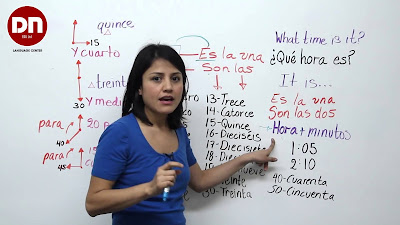 DN
LANGUAGE CENTER
quince
15
y cuarto
30
y medi
para
20
40
para
15
45
Es la una
Son las
13-Trece
14-Catorce
15-Quince
16-Dieciseis
17-Diecisiete
18-
30-Treinta
What time is it?
¿Qué hora es?
It is...
Es la una
Son las dos
Hora + minutos
1:05
2:10
40-Cuarenta
50-Cincuenta